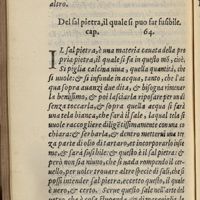 altro.
Del sal pietra, il quale si puo far fusibile.
cap. 64.
IL sal pietra, è una materia cauata della pro
pria pietra, il quale si fa in questo mō, cioè.
Si piglia calcina uiua, quella quantità, che
si uuole: & si infunde in acqua, tanto, che l'ac
qua sopra auanzi due dita, & questa si fa bollire
benissimo, & poi lasciarla riposare per un dì
senza toccarla, & sopra quella acqua si farà
una tela bianca, che sarà il sale, laqual tela si
uuole raccogliere diligētissimamente con una
& serbarla, & dentro metterui una ter
za parte di olio di tartaro, et incorporarlo insie
me, & sarà fusibile: & questo è il sal pietra: &
però non sia niuno, che si uada rompendo il cer-
uello, per uoler trouare altra specie di sale, che si
possi intender sal pietra, eccetto questa, il quale
è uero, & certo. Serue questo sale nell'arte del